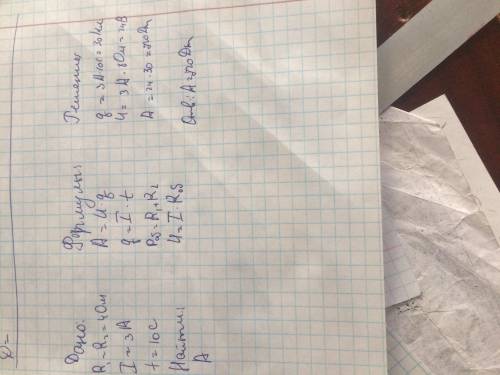 Дано:
R₁=R₂=4Ом
I=3А
t=10с
Найти:
А
Формулы:
A=U·q
q=I·t
Rоб=R₁+R₂
U=I·Rоб
Решение
q=3А·10с=30Кл
U=3А·8Ом=24В
A=24·30=720Дж
Отв: A=720Дж